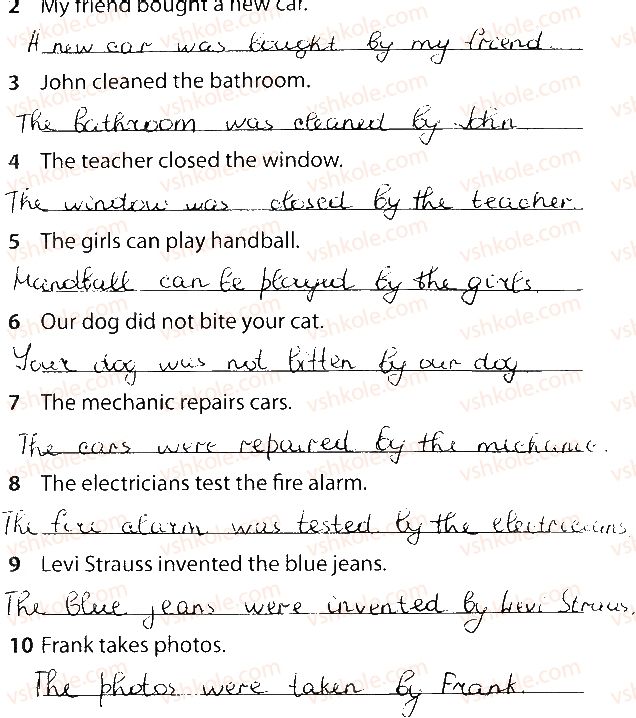 2 My friend bought a new car.
A new car was bought by my friend.
3 John cleaned the bathroom.
The bathroom was cleaned by John
4 The teacher closed the window.
The window was closed by the teacher.
5 The girls can play handball.
Handball can be played by the girls.
6 Our dog did not bite your cat.
Your dog was not bitten by our dog
7 The mechanic repairs cars.
The cars were repaired by the mechanic.
8 The electricians test the fire alarm.
The fire alarm was tested by the electricians
9 Levi Strauss invented the blue jeans.
The Blue jeans were invented by Levi Straus.
10 Frank takes photos.
The photos were taken by Frank.